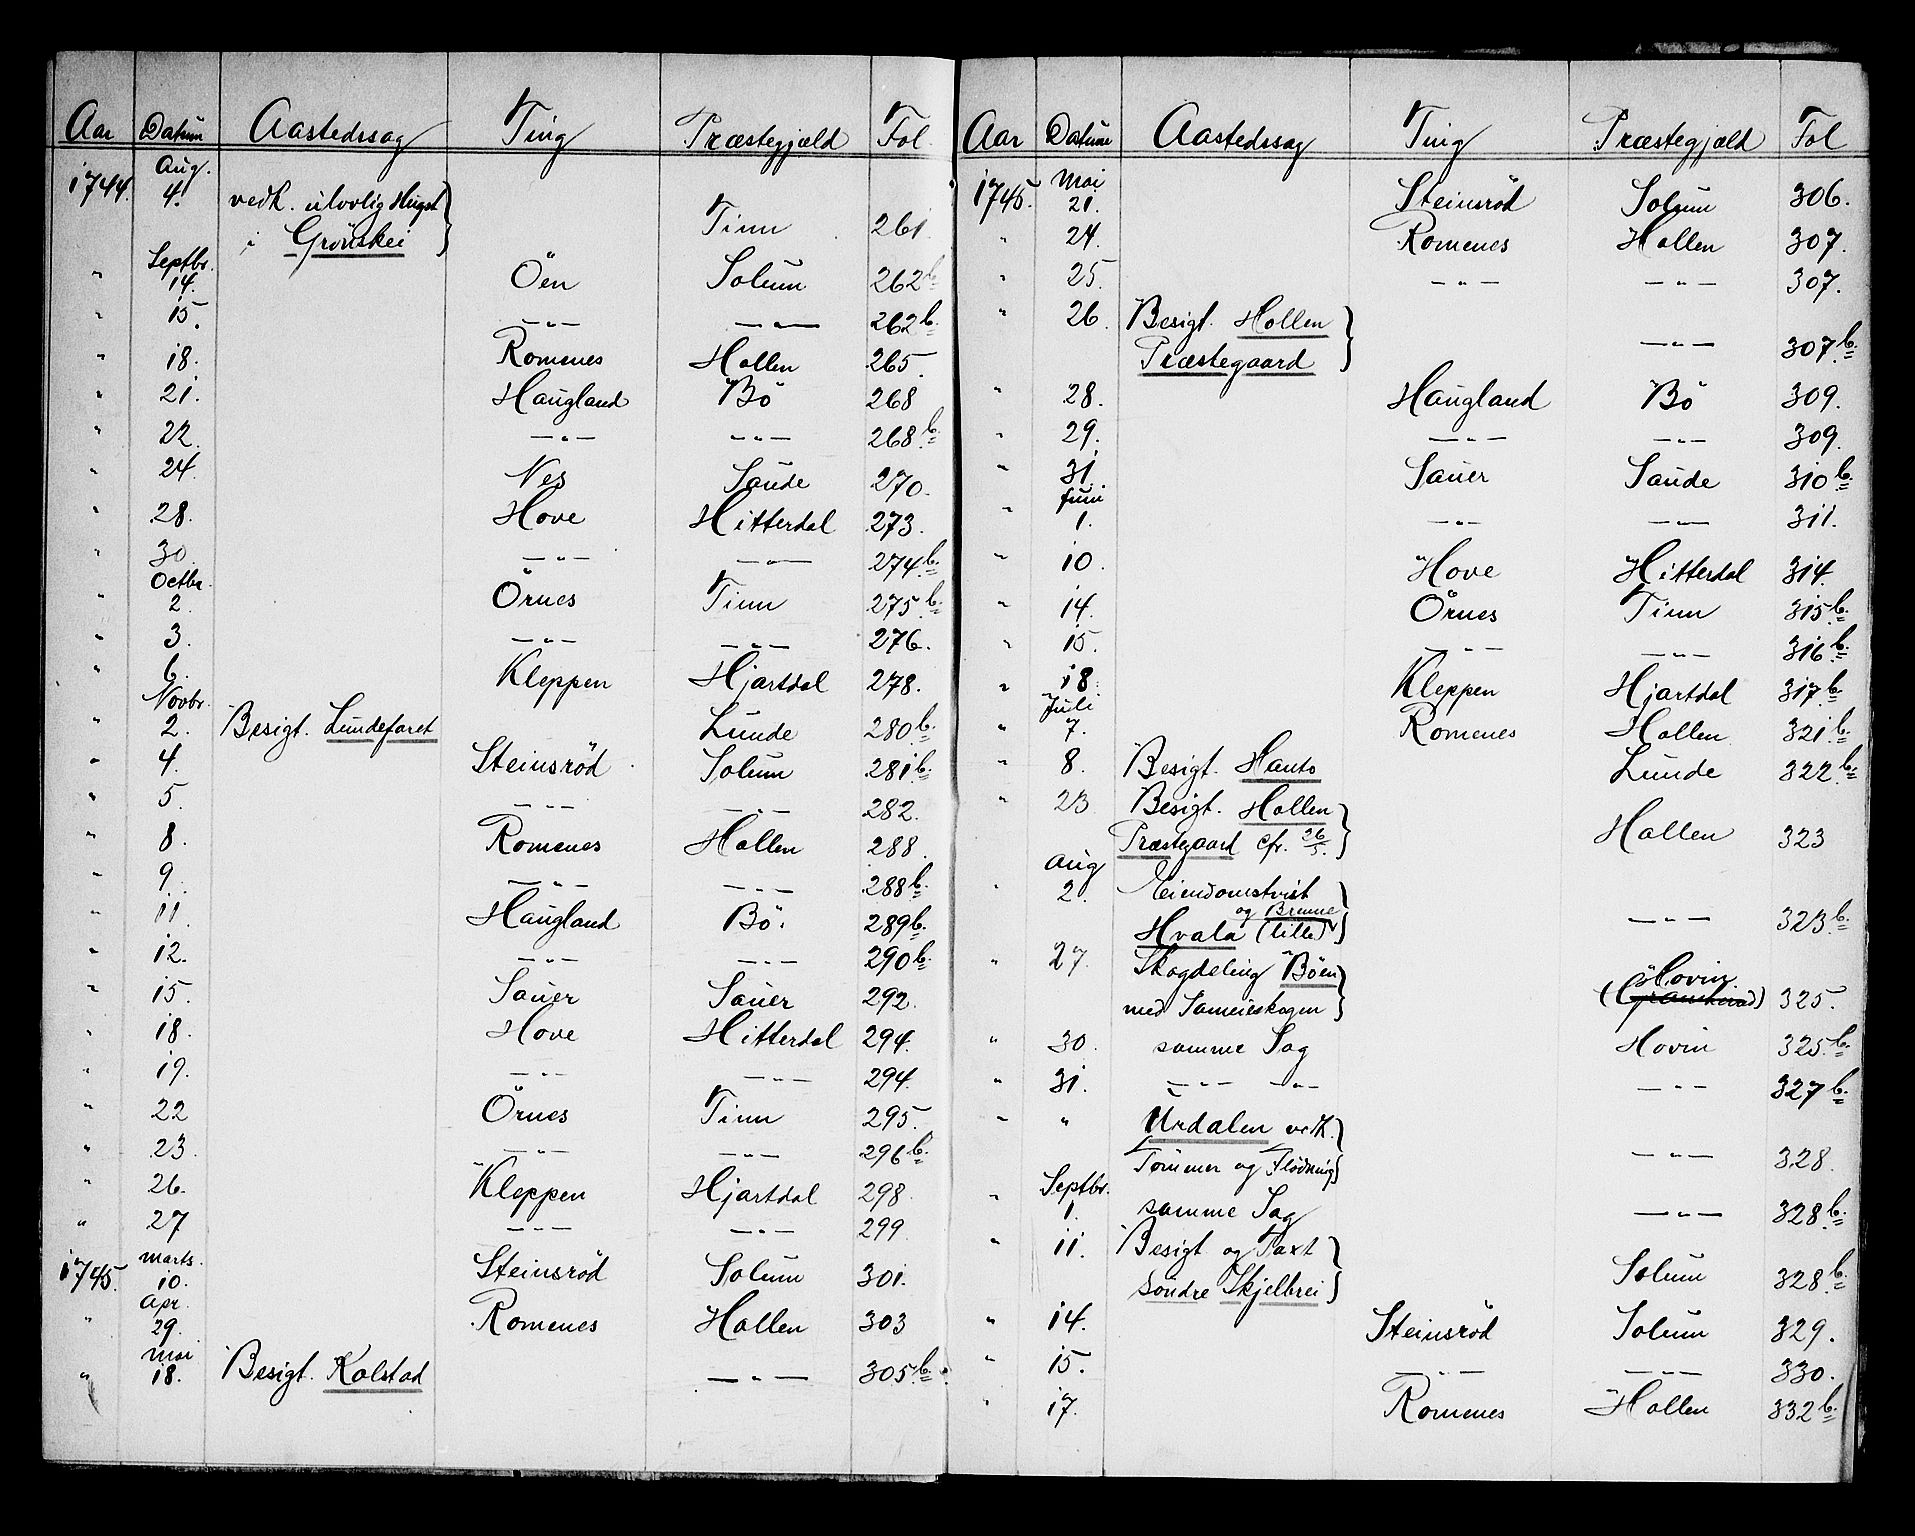 Aar Datum Aastedssag Ting Præstegjæld Fol.
1744. Aug. 4. vedk. ulovlig Hugst
i Grönskei } Tinn 261.
" Septbr. 14. Öen Solum 262 b.
" 15. — " — — " — 262 b.
" 18. Romenes Hollen 265.
" 21. Haugland Bö 268
" 22. — " — — " — 268 b.
" 24. Nes Saude 270.
" 28. Hove Hitterdal 273.
" 30. — " — — " — 274 b.
" Octbr. 2. Örnes Tinn 275 b.
" 3. — " — — " — 276.
" 6. Kleppen Hjartdal 278.
" Novbr. 2. Besigt. Lundefaret Lunde 280 b.
" 4. Steinsröd Solum 281 b.
" 5. — " — — " — 282.
" 8. Romenes Hollen 288.
" 9. — " — — " — 288 b.
" 11. Haugland Bö. 289 b.
" 12. — " — — " — 290 b.
" 15. Sauer Sauer 292.
" 18. Hove Hitterdal 294.
" 19. — " — — " — 294.
" 22 Örnes Tinn 295.
" 23. — " — — " — 296 b.
" 26. Kleppen Hjartdal 298.
" 27 — " — — " — 299
1745. Marts. 10. Steinsröd Solum 301.
" Apr. 29. Romenes Hollen 303
" Mai 18. Besigt. Kolstad — " — 305 b.
Aar Datum Aastedssag Ting Præstegjæld Fol
1745. Mai 21. Steinsröd Solum 306.
" 24. Romenes Hollen 307.
" 25. — " — — " — 307.
" 26. Besigt. Hollen
Præstegaard } — " — 307 b.
" 28. Haugland Bö 309.
" 29. — " — — " — 309.
" 31. Sauer Saude 310 b.
" Juni 1. — " — — " — 311.
" 10. Hove Hitterdal 314.
" 14. Örnes Tinn 315 b.
" 15. — " — — " — 316 b.
" 18. Kleppen Hjartdal 317 b.
" Juli 7. Romenes Hollen 321 b.
" 8. Besigt. Hauto Lunde 322 b.
" 23. Besigt. Hollen
Præstegaard cfr. 26/5. } Hollen 323
" Aug 2. Eiendomstvist
og Brenne
Hvala (lille) } — " — 323 b.
" 27. Skogdeling Böen
med Sameieskogen } Hovin
(Gransherad) 325.
" 30. samme Sag Hovin 325 b.
" 31. — " — — " — — " — 327 b.
" " Urdalen vedk.
Tömmer og Flödning } — " — 328.
" Septbr. 1. samme Sag — " — 328 b.
" 11. Besigt og Taxt
söndre Skjelbrei } Solum 328 b.
" 14. Steinsröd Solum 329.
" 15. — " — — " — 330.
" 17. Romenes Hollen 332 b.